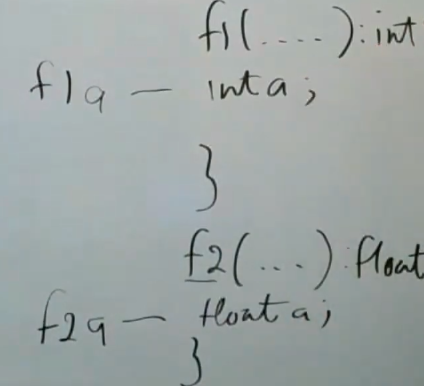 f1(....):int
f1a — int a;
}
f2(...):float
f2a — float a;
}